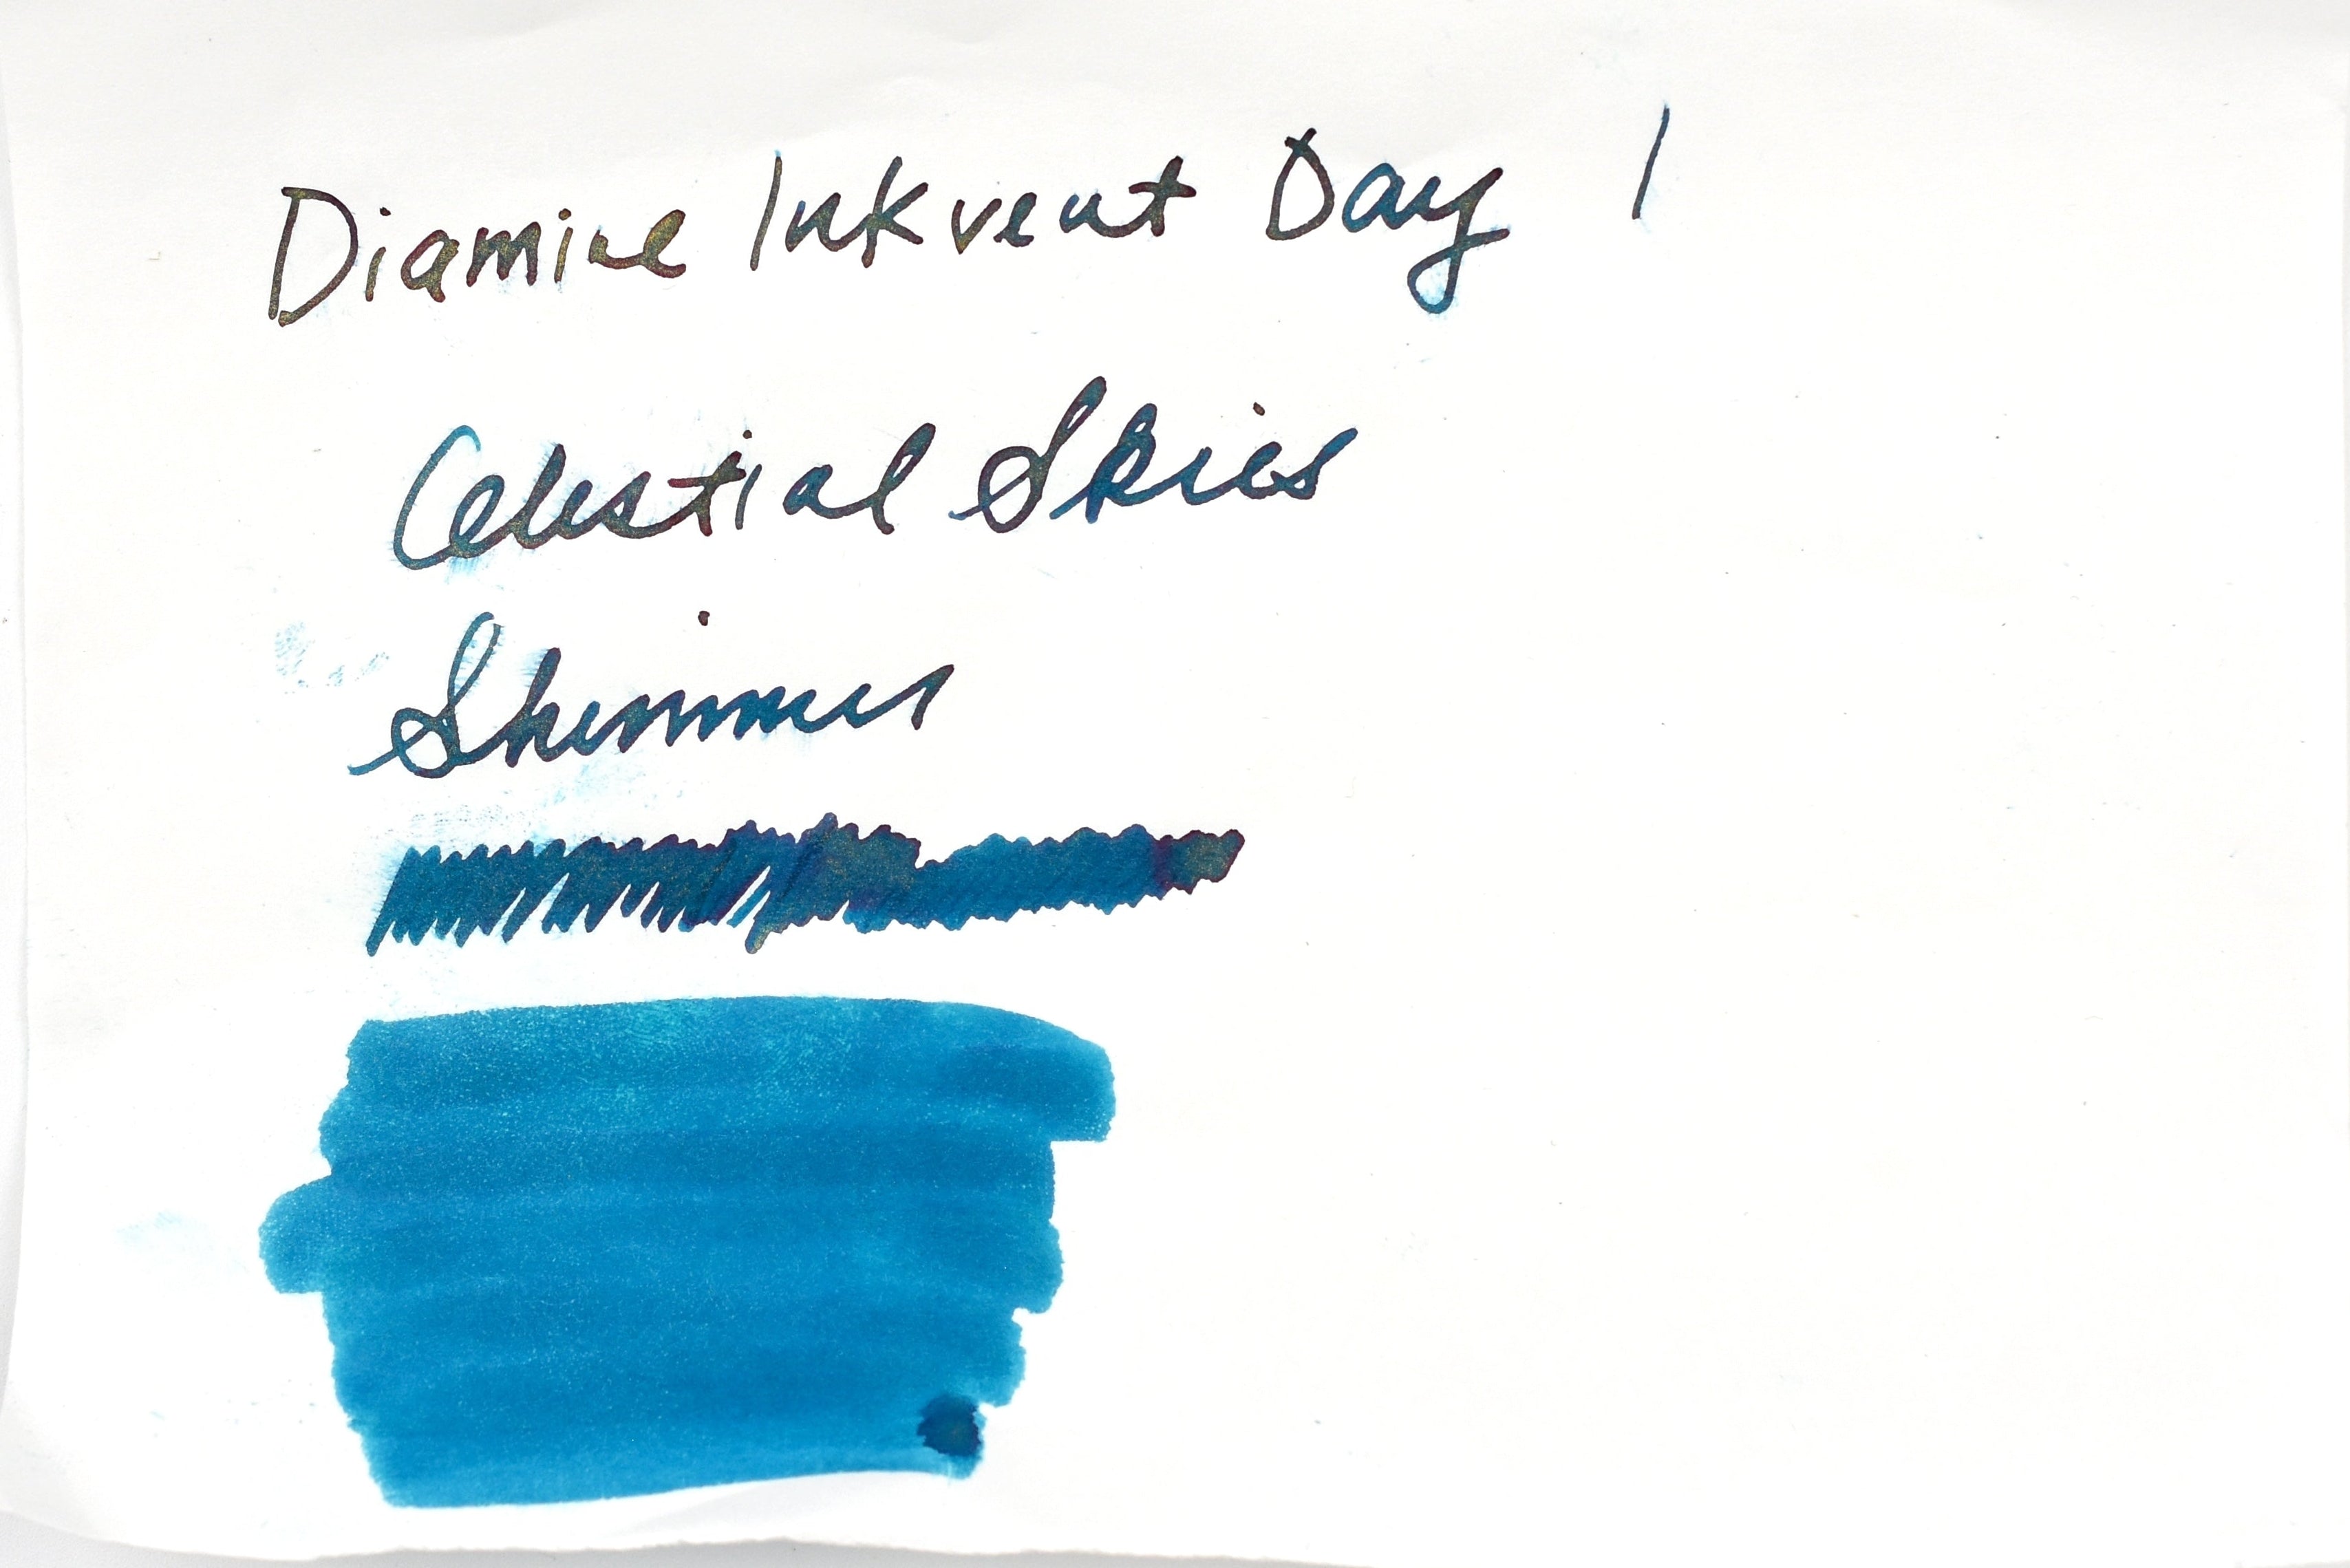 Diamine Inkvent Day 1
Celestial Skies
Shimmer